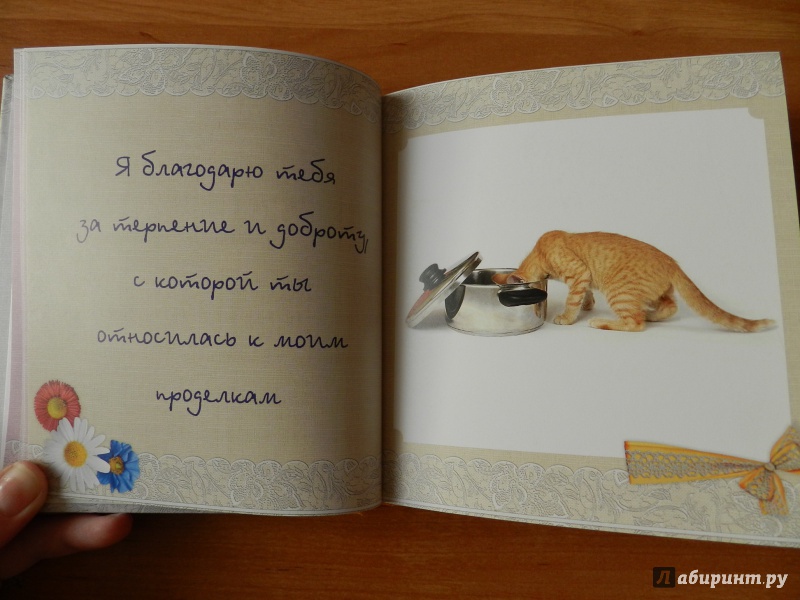 Я благодарю тебя
за терпение и доброту,
с которой ты
относилась к моим
проделкам
Лабиринт.ру